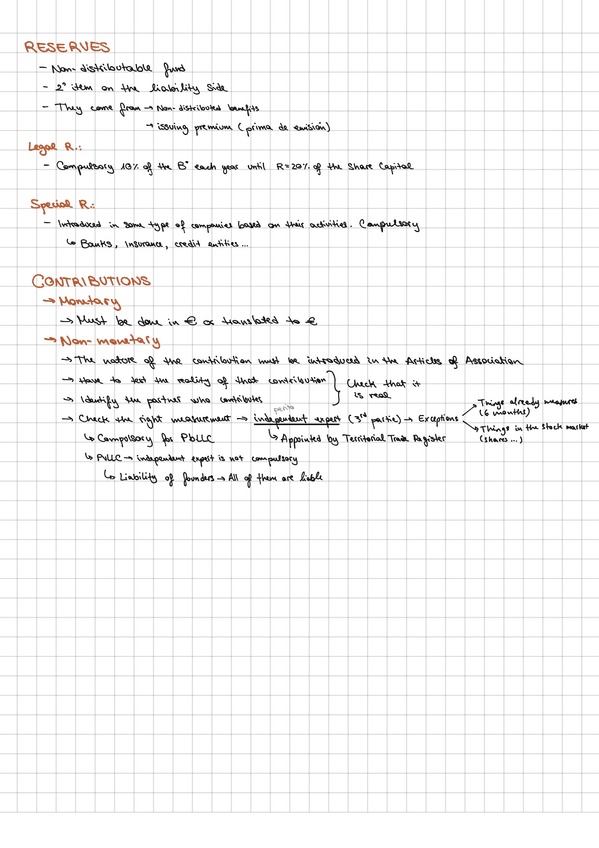 RESERVES
- Non-distributable fund
- 2° item on the liability side
- They come from → Non-distributed benefits
→ issuing premium (prima de emisión)
Legal R.:
- Compulsory 10% of the B° each year until R=20% of the Share Capital
Special R.:
- Introduced in some type of companies based on their activities. Compulsory
↳ Banks, Insurance, credit entities...
CONTRIBUTIONS
→ Monetary
→ Must be done in € or translated to €
→ Non-monetary
→ The nature of the contribution must be introduced in the Articles of Association
→ Have to test the reality of that contribution } Check that it is real
→ Identify the partner who contributes
perito
→ Check the right measurement → independent expert (3rd partie) → Exceptions → Things already measured (6 months)
→ Things in the stock market (shares...)
↳ Compolsory for PbLLC ↳ Appointed by Territorial Trade Register
↳ PvLLC → independent expert is not compulsory
↳ Liability of founders → All of them are liable